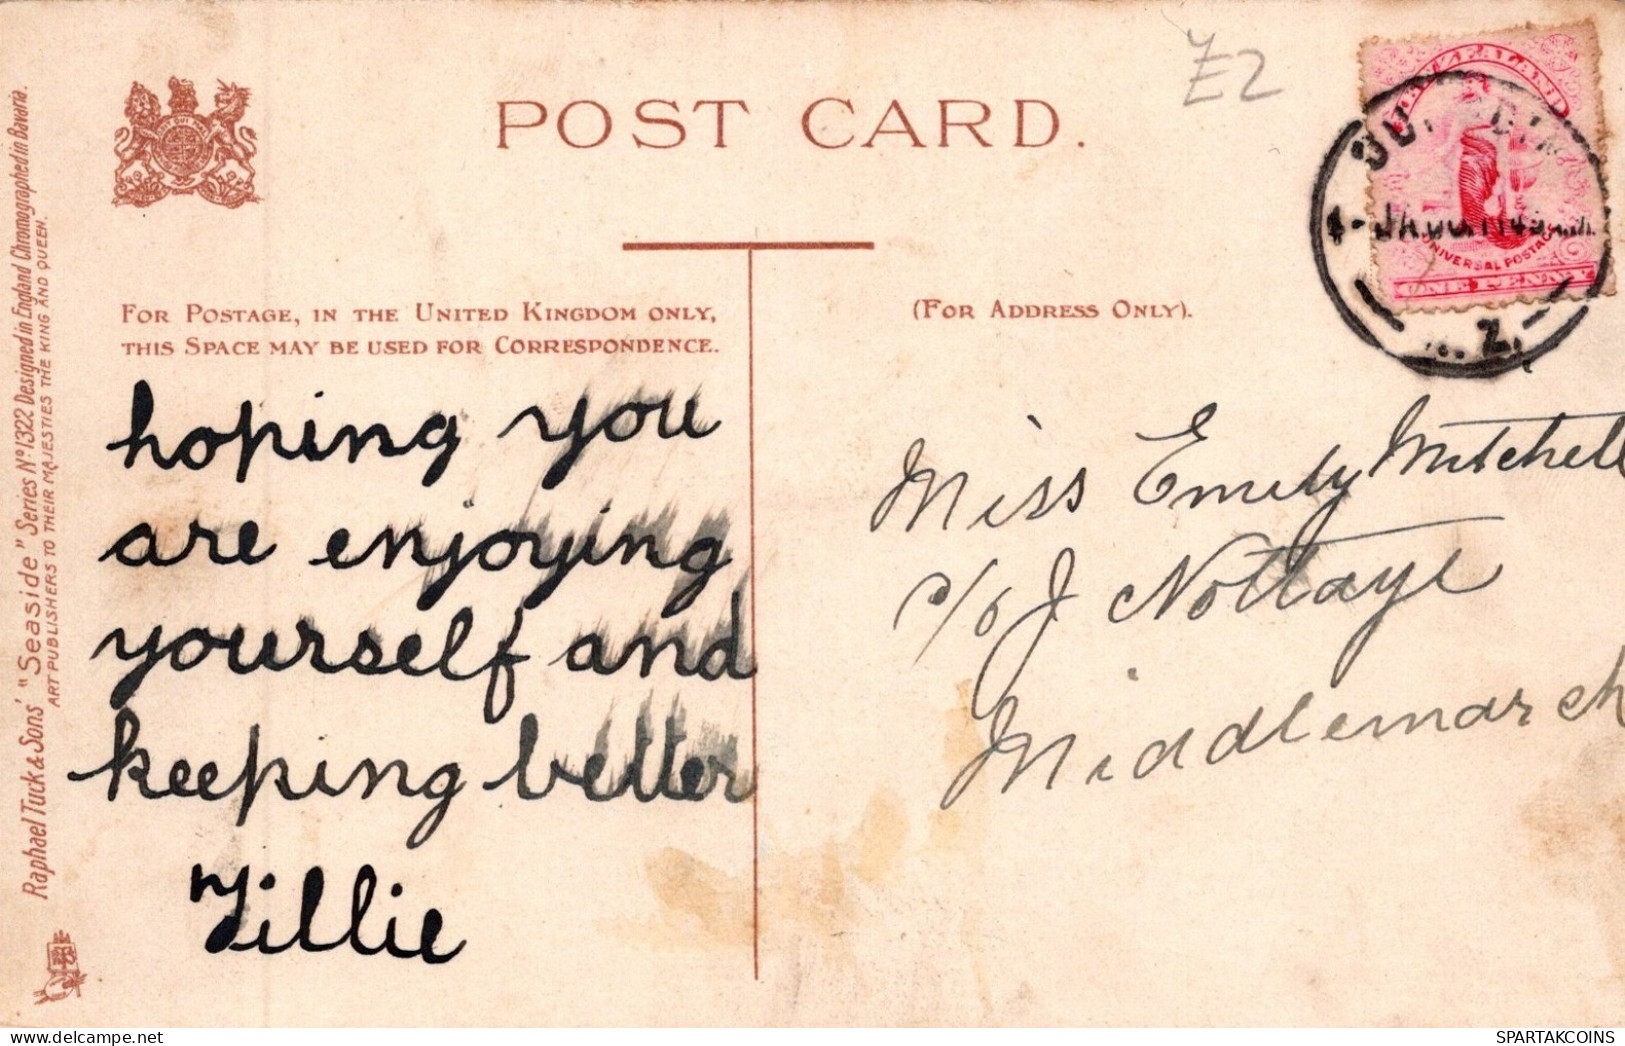 POST CARD.
Z2
FOR POSTAGE, IN THE UNITED KINGDOM ONLY,
THIS SPACE MAY BE USED FOR CORRESPONDENCE.
(FOR ADDRESS ONLY).
hoping you
are enjoying
yourself and
keeping better
Tillie
Miss Emily Mitchell
c/o J Nottage
Middlemarch
UNIVERSAL POSTAGE
ONE PENNY
Z.
Raphael Tuck & Sons' "Seaside" Series Nº 1322 Designed in England Chromographed in Bavaria.
ART PUBLISHERS TO THEIR MAJESTIES THE KING AND QUEEN.
SPARTAKCOINS